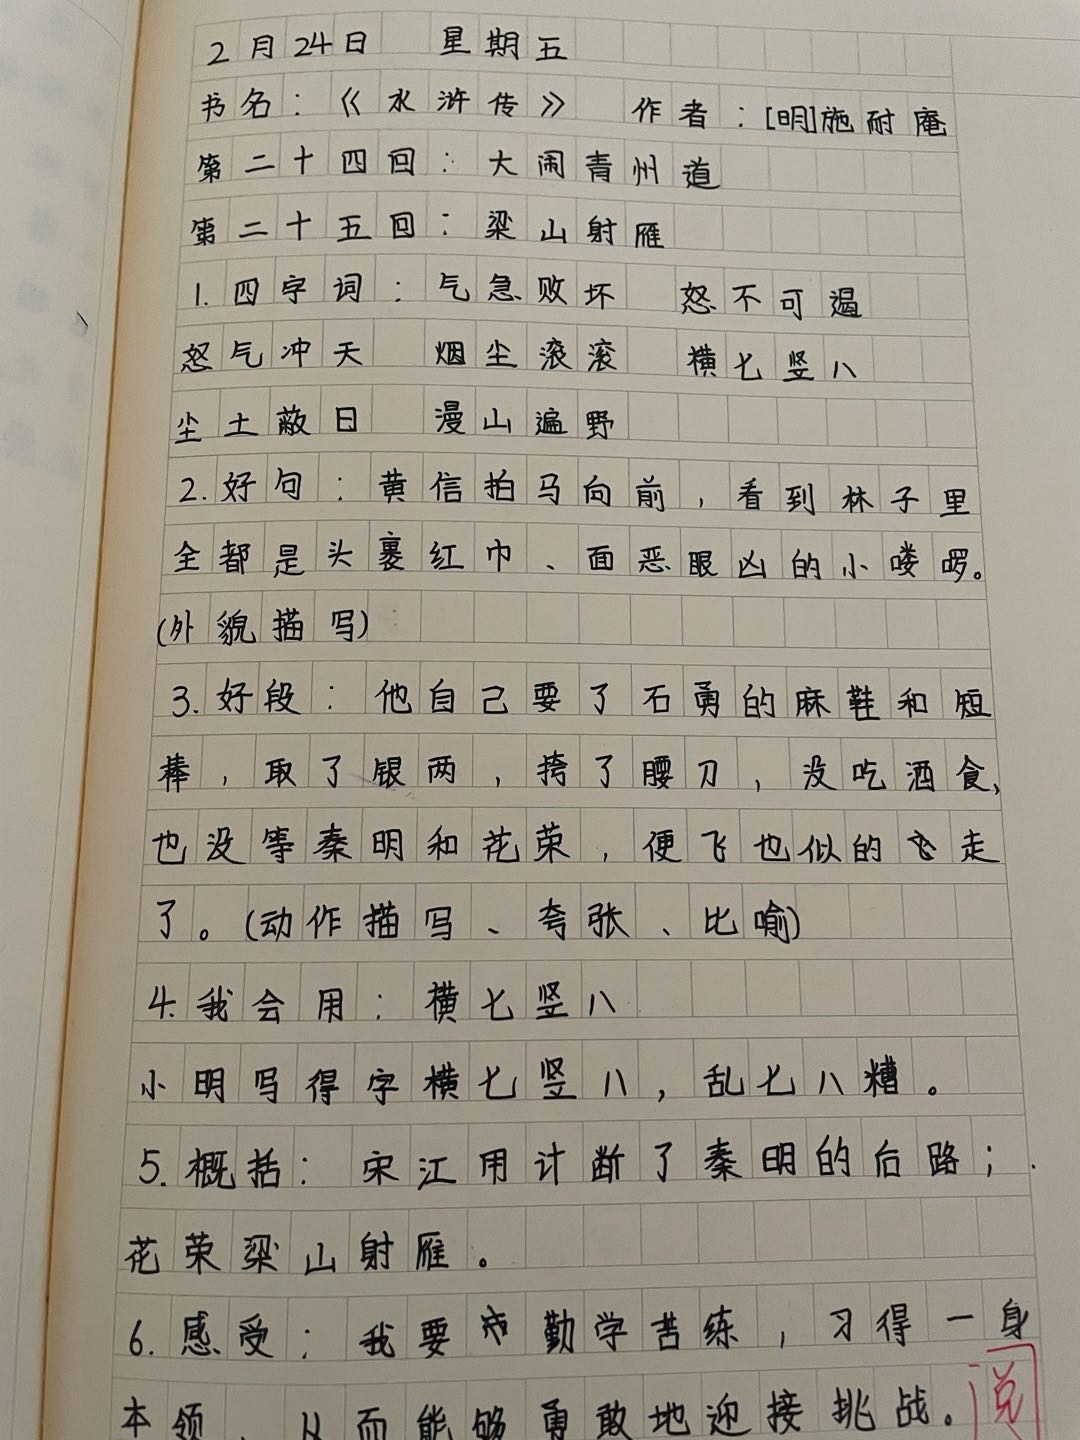 2月24日 星期五
书名：《水浒传》 作者：[明]施耐庵
第二十四回：大闹青州道
第二十五回：梁山射雁
1.四字词：气急败坏 怒不可遏
怒气冲天 烟尘滚滚 横七竖八
尘土蔽日 漫山遍野
2.好句：黄信拍马向前，看到林子里
全都是头裹红巾、面恶眼凶的小喽啰。
(外貌描写)
3.好段：他自己要了石勇的麻鞋和短
棒，取了银两，挎了腰刀，没吃酒食，
也没等秦明和花荣，便飞也似的飞走
了。(动作描写、夸张、比喻)
4.我会用：横七竖八
小明写得字横七竖八，乱七八糟。
5.概括：宋江用计断了秦明的后路；
花荣梁山射雁。
6.感受：我要勤学苦练，习得一身
本领，从而能够勇敢地迎接挑战。
阅